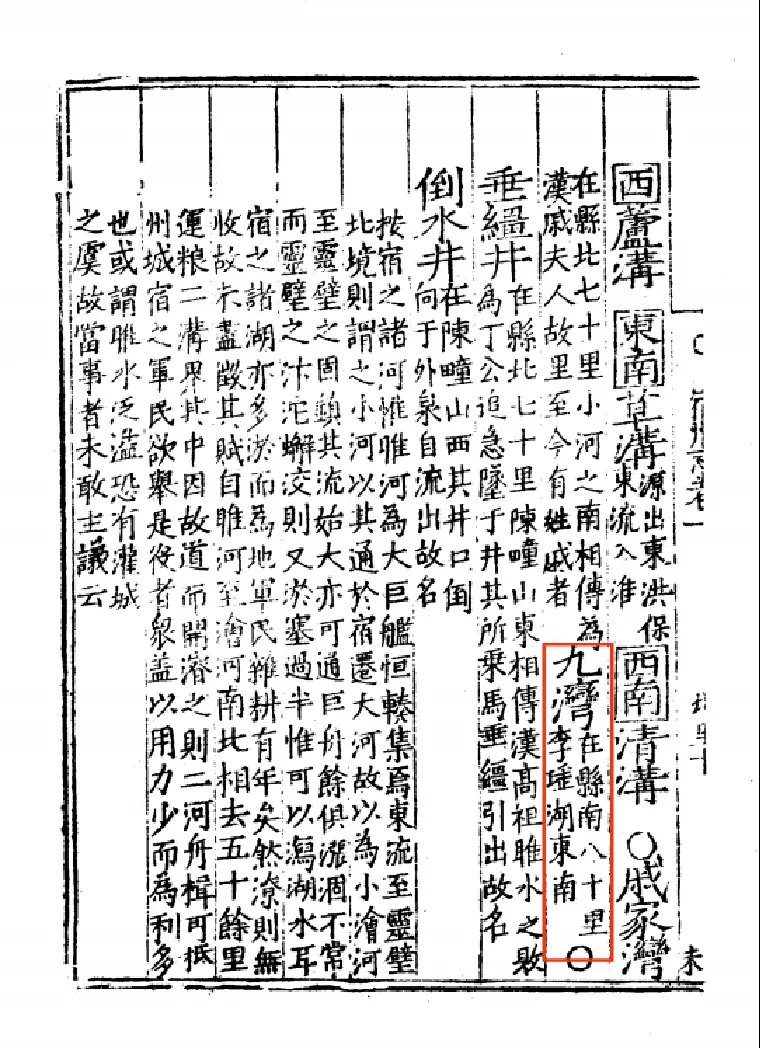 西蘆溝 東南草溝 源出東洪保
東流入淮 西南清溝 ○戚家灣
在縣北七十里小河之南相傳為
漢戚夫人故里至今有姓戚者 九灣 在縣南八十里
李瑶湖東南 ○
垂繮井 在縣北七十里陳疃山東相傳漢高祖睢水之敗
為丁公追急墜于井其所乗馬垂繮引出故名
倒水井 在陳疃山西其井口倒
向于外泉自流出故名
按宿之諸河惟睢河為大巨艦恒輳集焉東流至靈璧
北境則謂之小河以其通於宿遷大河故以為小澮河
至靈璧之固鎮其流始大亦可通巨舟餘俱漲涸不常
而靈璧之汴沱澥洨則又淤塞過半惟可以瀉湖水耳
宿之諸湖亦多淤而為地軍民雜耕有年矣然潦則無
收故不盡徵其賦自睢河至澮河南北相去五十餘里
運粮二溝界其中因故道而開濬之則二河舟楫可抵
州城宿之軍民欲舉是役者衆蓋以用力少而為利多
也或謂睢水泛溢恐有灌城
之虞故當事者未敢主議云